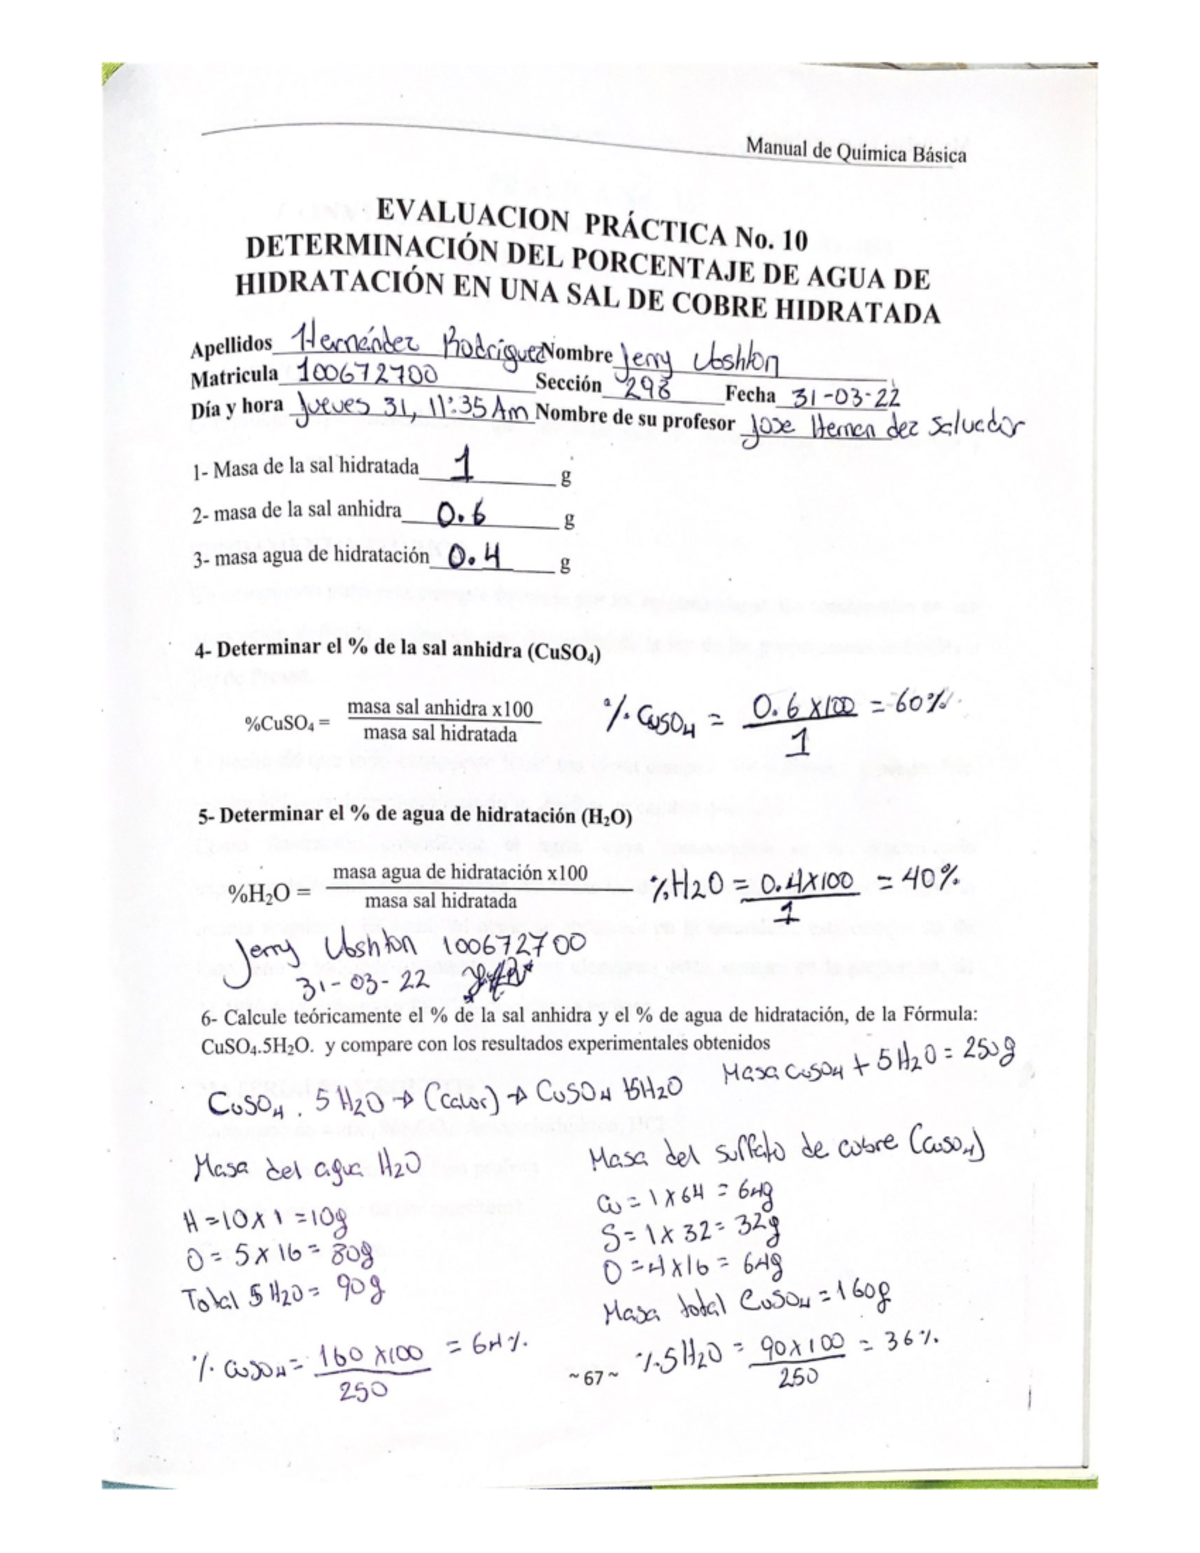 Manual de Química Básica
EVALUACION PRÁCTICA No. 10
DETERMINACIÓN DEL PORCENTAJE DE AGUA DE
HIDRATACIÓN EN UNA SAL DE COBRE HIDRATADA
Apellidos Hernández Rodríguez Nombre Jerry Uoshton
Matricula 100672700 Sección 298 Fecha 31-03-22
Día y hora Jueves 31, 11:35 Am Nombre de su profesor Jose Hernandez Salvador
1- Masa de la sal hidratada 1 g
2- masa de la sal anhidra 0.6 g
3- masa agua de hidratación 0.4 g
4- Determinar el % de la sal anhidra (CuSO₄)
%CuSO₄ = masa sal anhidra x100 / masa sal hidratada % CuSO₄ = 0.6 x100 / 1 = 60%
5- Determinar el % de agua de hidratación (H₂O)
%H₂O = masa agua de hidratación x100 / masa sal hidratada %H2O = 0.4x100 / 1 = 40%
Jerry Uoshton 100672700
31-03-22
6- Calcule teóricamente el % de la sal anhidra y el % de agua de hidratación, de la Fórmula:
CuSO₄.5H₂O. y compare con los resultados experimentales obtenidos
Masa CuSO₄ + 5H₂O = 250g
CuSO₄ . 5H₂O → (calor) → CuSO₄ + 5H₂O
Masa del agua H₂O
Masa del sulfato de cobre (CuSO₄)
H = 10 x 1 = 10g
Cu = 1 x 64 = 64g
O = 5 x 16 = 80g
S = 1 x 32 = 32g
Total 5 H₂O = 90g
O = 4x16 = 64g
Masa total CuSO₄ = 160g
% CuSO₄ = 160 x100 / 250 = 64%
%5H₂O = 90x100 / 250 = 36%
~ 67 ~